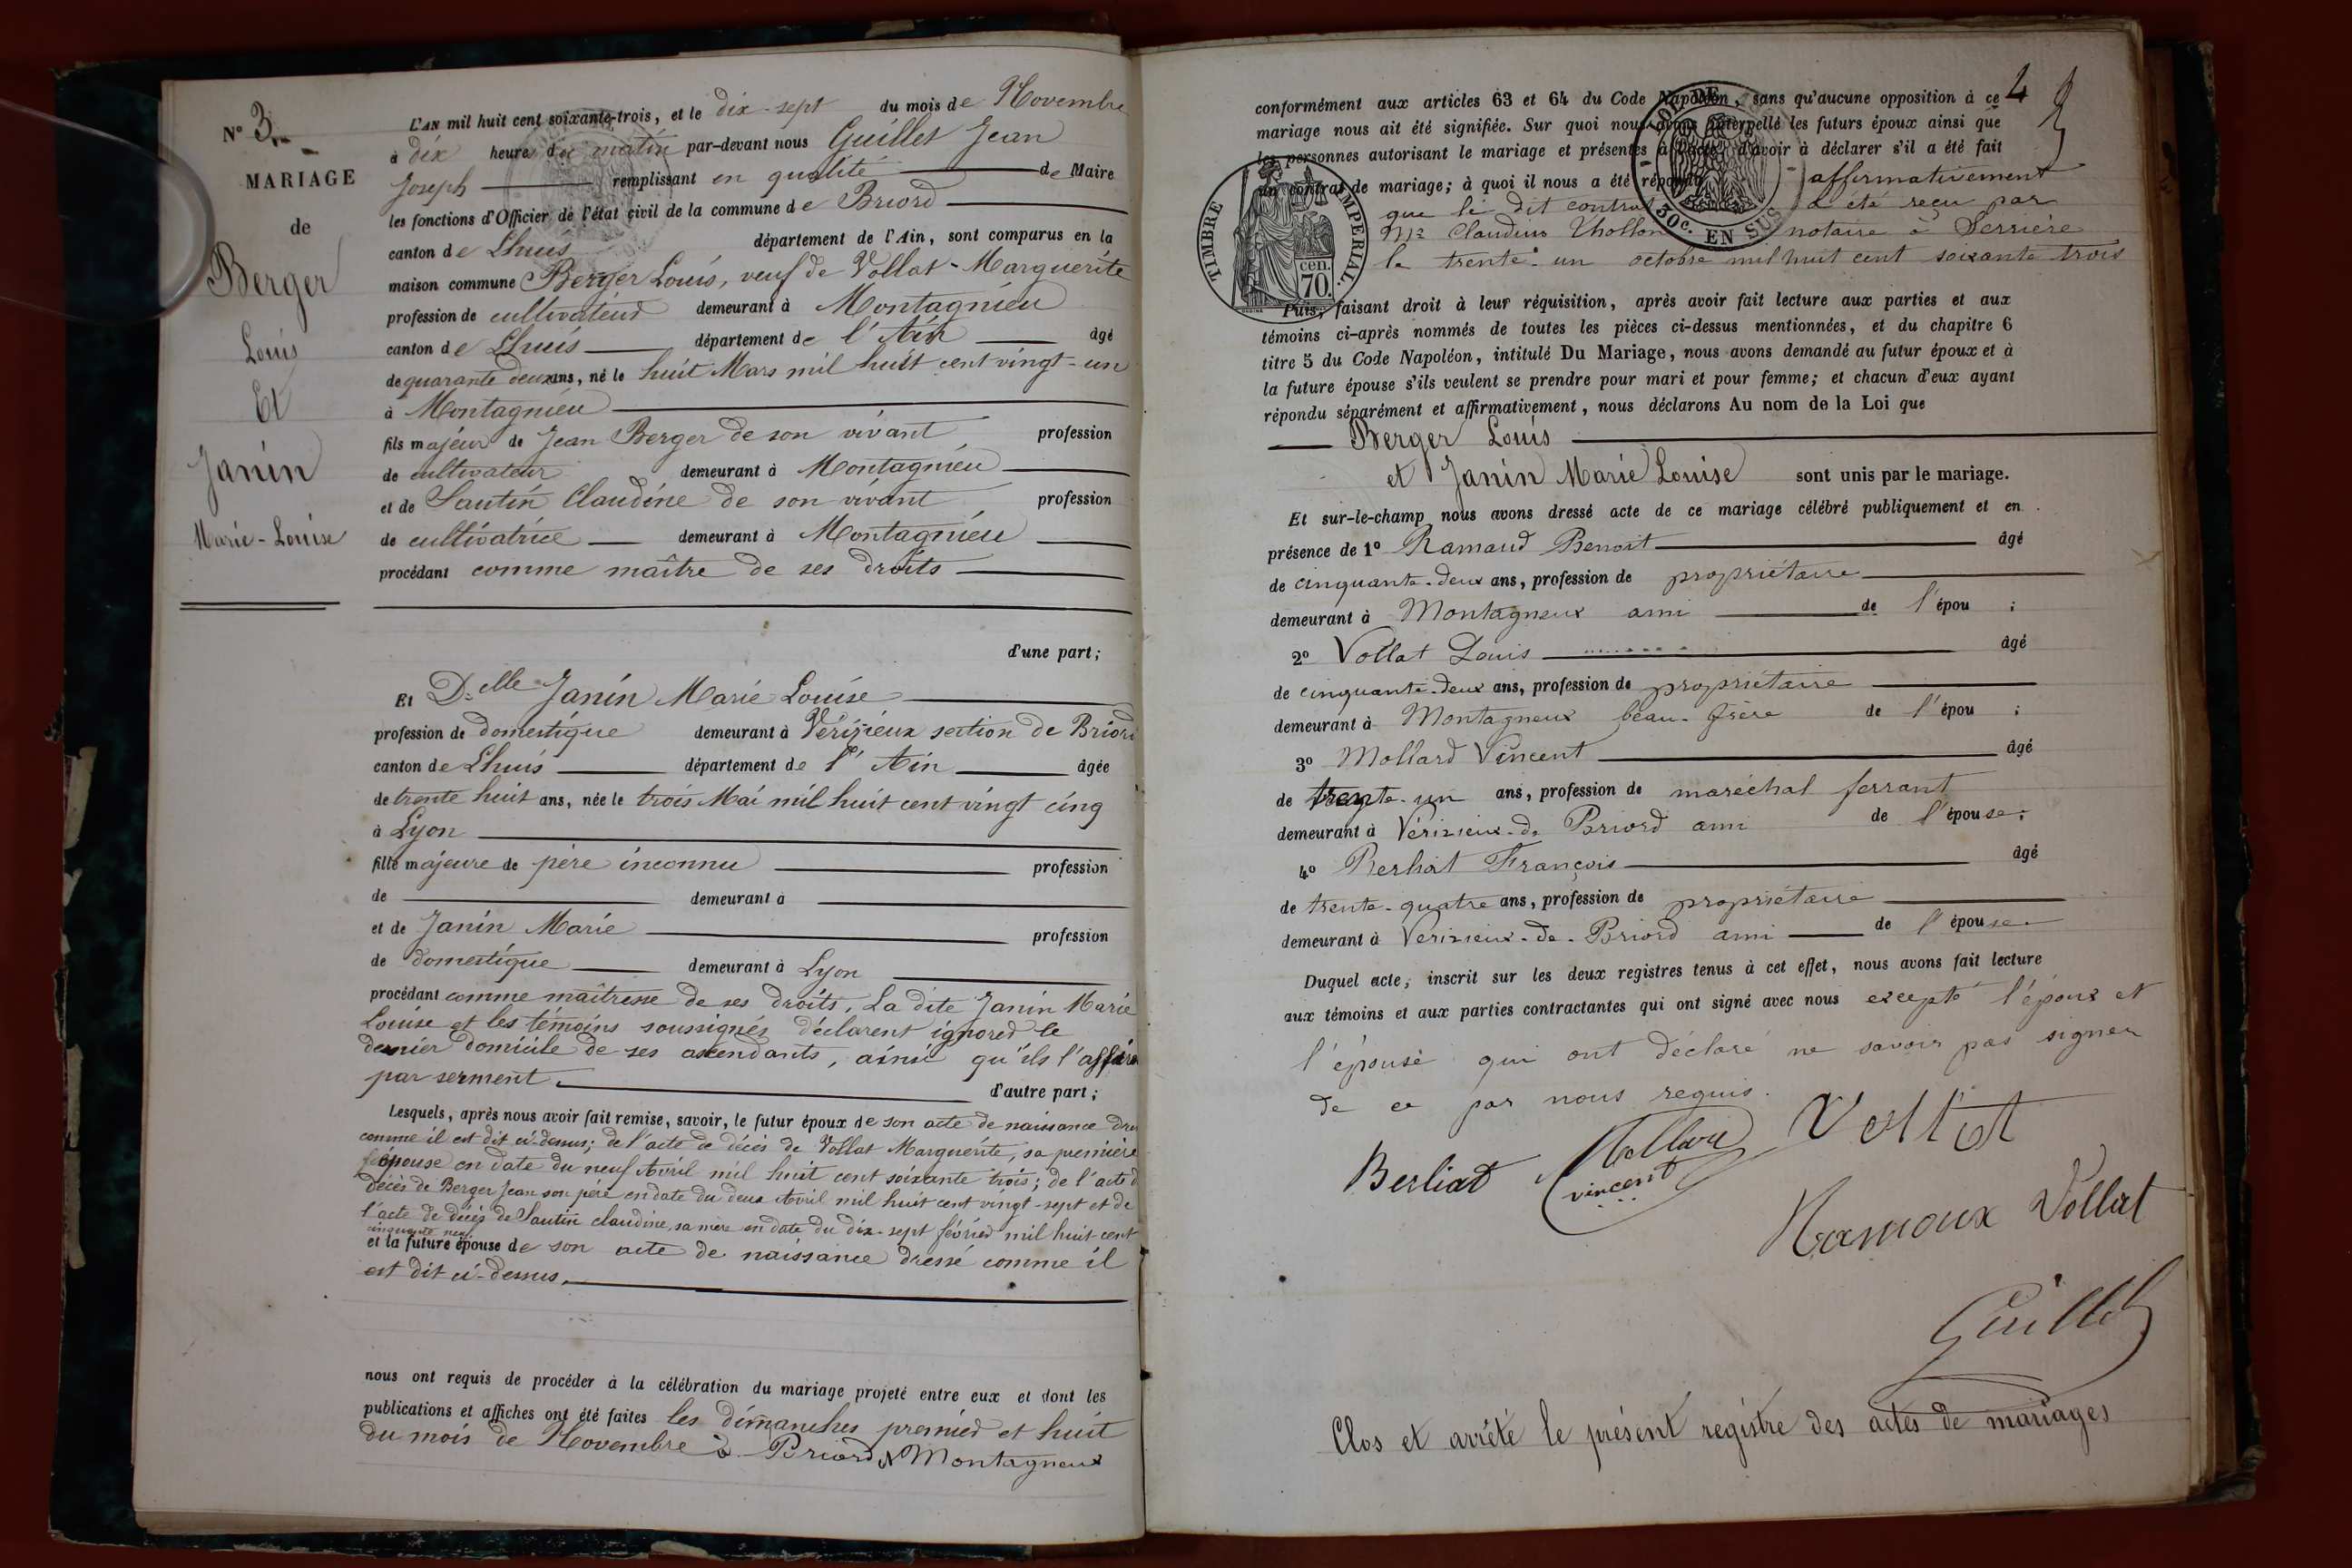 Nº 3.
MARIAGE
de
Berger
Louis
Et
Janin
Marie-Louise
L'AN mil huit cent soixante-trois, et le dix-sept du mois de Novembre
à dix heure du matin par-devant nous Guillet Jean
Joseph remplissant en qualité de Maire
les fonctions d'Officier de l'état civil de la commune de Briord
canton de Lhuis département de l'Ain, sont comparus en la
maison commune Berger Louis, veuf de Vollat-Marguerite
profession de cultivateur demeurant à Montagnieu
canton de Lhuis département de l'Ain âgé
de quarante deux ans, né le huit Mars mil huit cent vingt-un
à Montagnieu
fils majeur de Jean Berger de son vivant profession
de cultivateur demeurant à Montagnieu
et de Sautin Claudine de son vivant profession
de cultivatrice demeurant à Montagnieu
procédant comme maître de ses droits
d'une part;
Et D.elle Janin Marie Louise
profession de domestique demeurant à Vérizieux section de Briord
canton de Lhuis département de l'Ain âgée
de trente huit ans, née le trois Mai mil huit cent vingt cinq
à Lyon
fille majeure de père inconnu profession
de demeurant à
et de Janin Marie profession
de domestique demeurant à Lyon
procédant comme maîtresse de ses droits. La dite Janin Marie
Louise et les témoins soussignés déclarent ignorer le
dernier domicile de ses ascendants, ainsi qu'ils l'
par serment. d'autre part;
Lesquels, après nous avoir fait remise, savoir, le futur époux de son acte de naissance
comme il est dit ci-dessus; de l'acte de décès de Vollat Marguerite, sa première
épouse en date du neuf Avril mil huit cent soixante trois; de l'acte d
décès de Berger Jean son père en date du deux Avril mil huit cent vingt-sept et de
l'acte de décès de Sautin claudine, sa mère en date du dix-sept février mil huit cent
cinquante neuf
et la future épouse de son acte de naissance dressé comme il
est dit ci-dessus.
nous ont requis de procéder à la célébration du mariage projeté entre eux et dont les
publications et affiches ont été faites les dimanches premier et huit
du mois de Novembre à Briord & Montagneux
4
conformément aux articles 63 et 64 du Code Napoléon, sans qu'aucune opposition à ce
mariage nous ait été signifiée. Sur quoi nous avons interpellé les futurs époux ainsi que
les personnes autorisant le mariage et présentes à l'acte, d'avoir à déclarer s'il a été fait
un contrat de mariage; à quoi il nous a été répondu affirmativement
que le dit contrat a été reçu par
Mr Claudius Thollon notaire à Serrière
le trente-un octobre mil huit cent soixante trois
TIMBRE IMPERIAL
cen.
70.
30c. EN SUS
Puis, faisant droit à leur réquisition, après avoir fait lecture aux parties et aux
témoins ci-après nommés de toutes les pièces ci-dessus mentionnées, et du chapitre 6
titre 5 du Code Napoléon, intitulé Du Mariage, nous avons demandé au futur époux et à
la future épouse s'ils veulent se prendre pour mari et pour femme; et chacun d'eux ayant
répondu séparément et affirmativement, nous déclarons Au nom de la Loi que
Berger Louis
et Janin Marie Louise sont unis par le mariage.
Et sur-le-champ nous avons dressé acte de ce mariage célébré publiquement et en
présence de 1º Ramaud Benoit âgé
de cinquante-deux ans, profession de propriétaire
demeurant à Montagneux ami de l'épou ;
2º Vollat Louis âgé
de cinquante-deux ans, profession de propriétaire
demeurant à Montagneux beau-frère de l'épou ;
3º Mollard Vincent âgé
de trente-un ans, profession de maréchal ferrant
demeurant à Vérizieux-de Briord ami de l'épouse;
4º Berliat François âgé
de trente-quatre ans, profession de propriétaire
demeurant à Verizieux-de-Briord ami de l'épouse
Duquel acte, inscrit sur les deux registres tenus à cet effet, nous avons fait lecture
aux témoins et aux parties contractantes qui ont signé avec nous excepté l'époux et
l'épouse qui ont déclaré ne savoir pas signer
de ce par nous requis.
Berliat Mollard
vincent
Ramoux Vollat
Guillet
Clos et arrêté le présent registre des actes de mariages